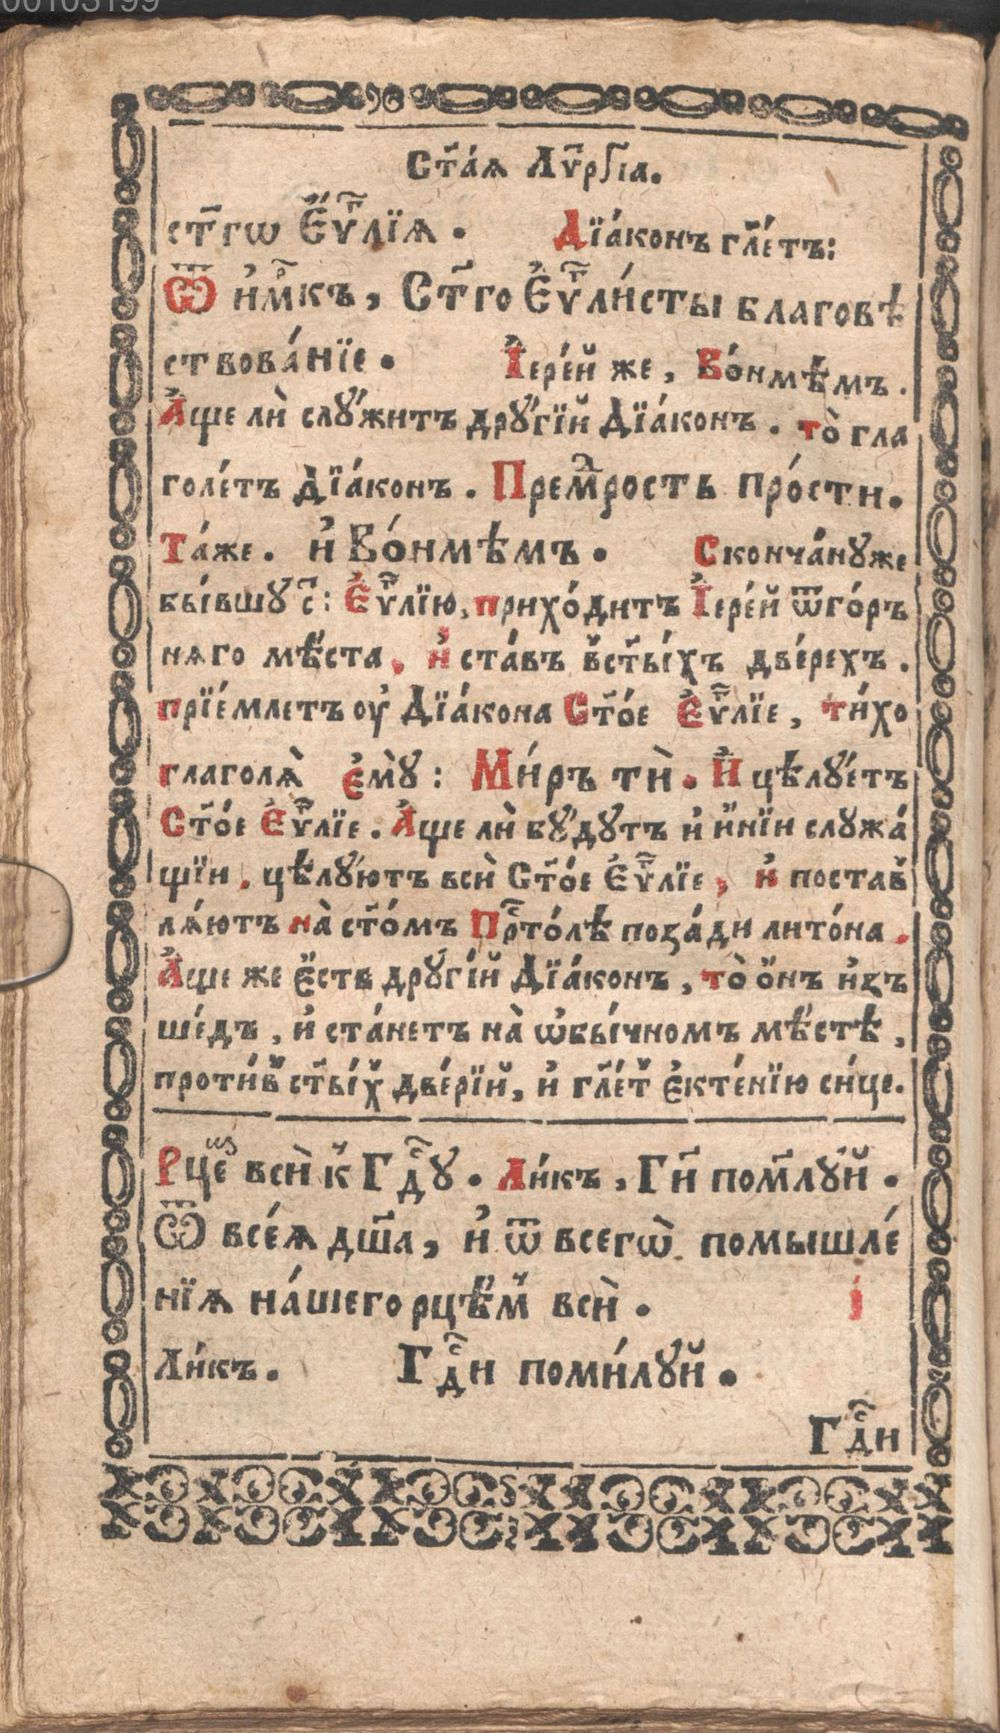 00103199
Ст҃а́ѧ Лѵ҃рⷢ҇їа.
ст҃гѡ Є҆ѵⷢ҇лїѧ. Дїа́конъ гл҃етъ:
Ѿ и҆мⷬ҇къ, Ст҃го Є҆ѵⷢ҇ли́сты благовѣ
ствова́нїе. І҆ере́й же, Во́нмѣмъ.
А҆ще лѝ слꙋ́житъ дрꙋ́гїй Дїа́конъ. то̀ гла
голе́тъ Дїа́конъ. Премⷣрость про́сти.
Та́же. и҆ Во́нмѣмъ. Сконча́нꙋже
бы́вшꙋ с҃: Є҆ѵⷢ҇лїю, прихо́дитъ І҆ере́й ѿго́ръ
нѧго мѣ́ста, и҆ ста́въ в̾ст҃ы́хъ две́рехъ.
прїе́млетъ оу҆ Дїа́кона Ст҃о́е Є҆ѵⷢ҇лїе, ти́хо
глаголѧ̀ є҆мꙋ̀: Ми́ръ тѝ. И҆ цѣлꙋ́етъ
Ст҃о́е Є҆ѵⷢ҇лїе. А҆ще лѝ бꙋ́дꙋтъ и҆ и҆́нїи слꙋжа́
щїи, цѣлꙋ́ютъ всѝ Ст҃о́е Є҆ѵⷢ҇лїе, и҆ постав̾
лѧ́ютъ на̀ ст҃о́мъ Прⷭ҇то́лѣ поза́ди лито́на.
А҆ще же є҆́сть дрꙋ́гїй Дїа́конъ, то̀ о҆́нъ и҆зъ
ше́дъ, и҆ ста́нетъ на̀ ѡ҆бы́чномъ мѣ́стѣ,
проти́в̾ ст҃ы́х̾ две́рїй, и҆ гл҃ет̾ є҆ктенїю си́це.
Рцеⷨ҇ всѝ к̾ Гдⷭ҇ꙋ. Ли́къ, Гⷭ҇и пом҃лꙋй.
Ѿ все́ѧ дш҃а, и҆ ѿ всегѡ̀ помышле́
нїѧ на́шего рцѣ́м̾ всѝ. і
Ли́къ. Гдⷭ҇и поми́лꙋй.
Гдⷭ҇и